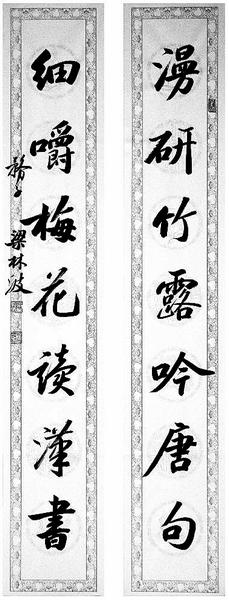 漫研竹露吟唐句
細嚼梅花讀漢書
梁林波